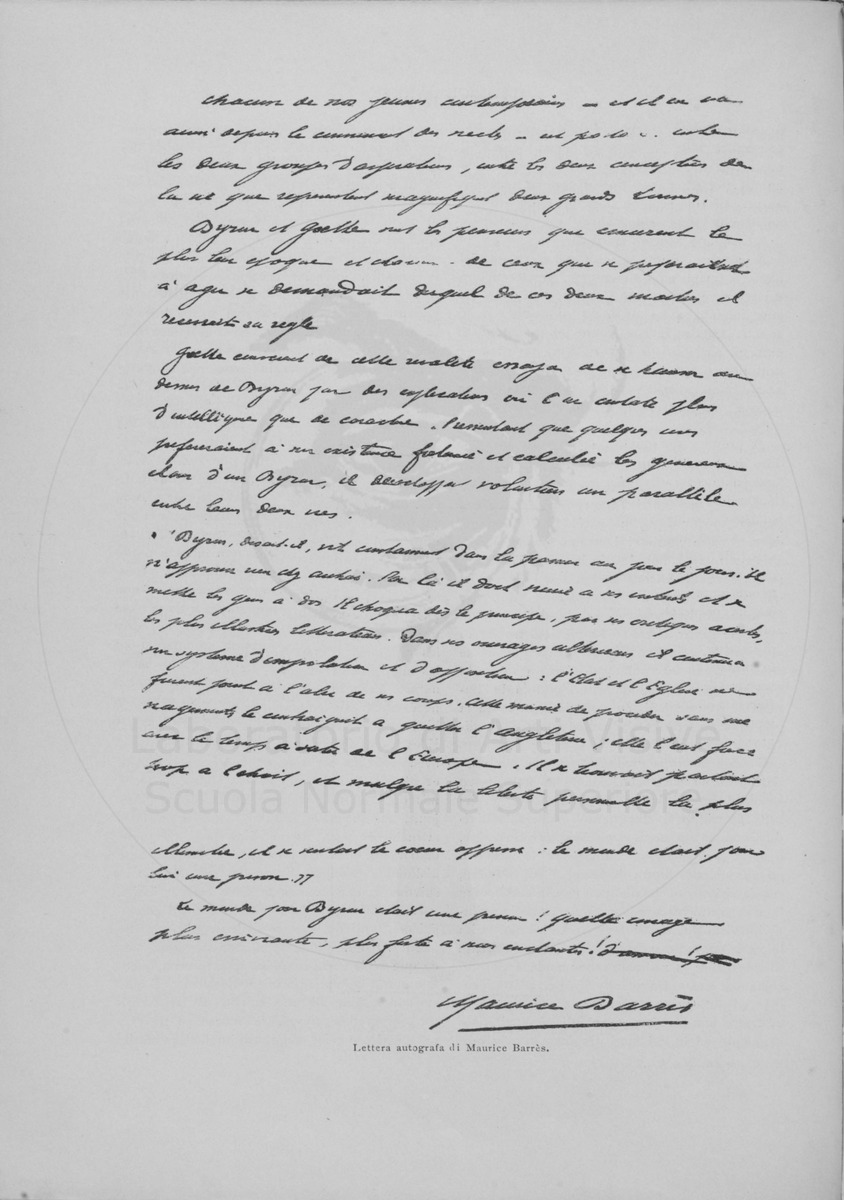 chacun de nos jeunes contemporains — et il en va
ainsi depuis le commencement des siècles — entre
les deux groupes d'aspirations, entre les deux conceptions de
la vie que représentent magnifiquement deux grands hommes.
Byron et Goethe sont les penseurs que
plus leur époque et chacun de ceux que se
à agir se demandait duquel de ces deux maîtres il
recevrait sa règle
Goethe de cette réalité essaya de se hausser au
dessus de Byron par des explications où l'on constate plus
d'intelligence que de. Pressentant que quelques uns
préféreraient à son existence et calculée les généreux
d'un Byron, il développa volontiers un parallèle
entre leurs deux vies.
"Byron, disait-il, vit constamment dans la au jour le jour. Il
n'approuve rien chez autrui. Par là il doit nuire à ses et se
mettre les gens à dos. Il choqua dès le principe, par ses critiques acerbes,
les plus illustres littérateurs. Dans ses ouvrages ultérieurs il continua
son système d'impulsion et d'opposition : l'Etat et l'Eglise ne
furent point à l'abri de ses coups. Cette manière de procéder sans
le contraignit à quitter l'Angleterre ; elle l'eut fait
avec le temps de l'Europe. Il se trouvait partout
trop à l'étroit, et malgré la liberté personnelle la plus
illimitée, il se sentait le coeur oppressé : le monde était pour
lui une prison."
Le monde pour Byron était une prison ! quelle image
plus enivrante, plus forte
Maurice Barrès
Lettera autografa di Maurice Barrès.
Laboratorio di Arti Visive
Scuola Normale Superiore